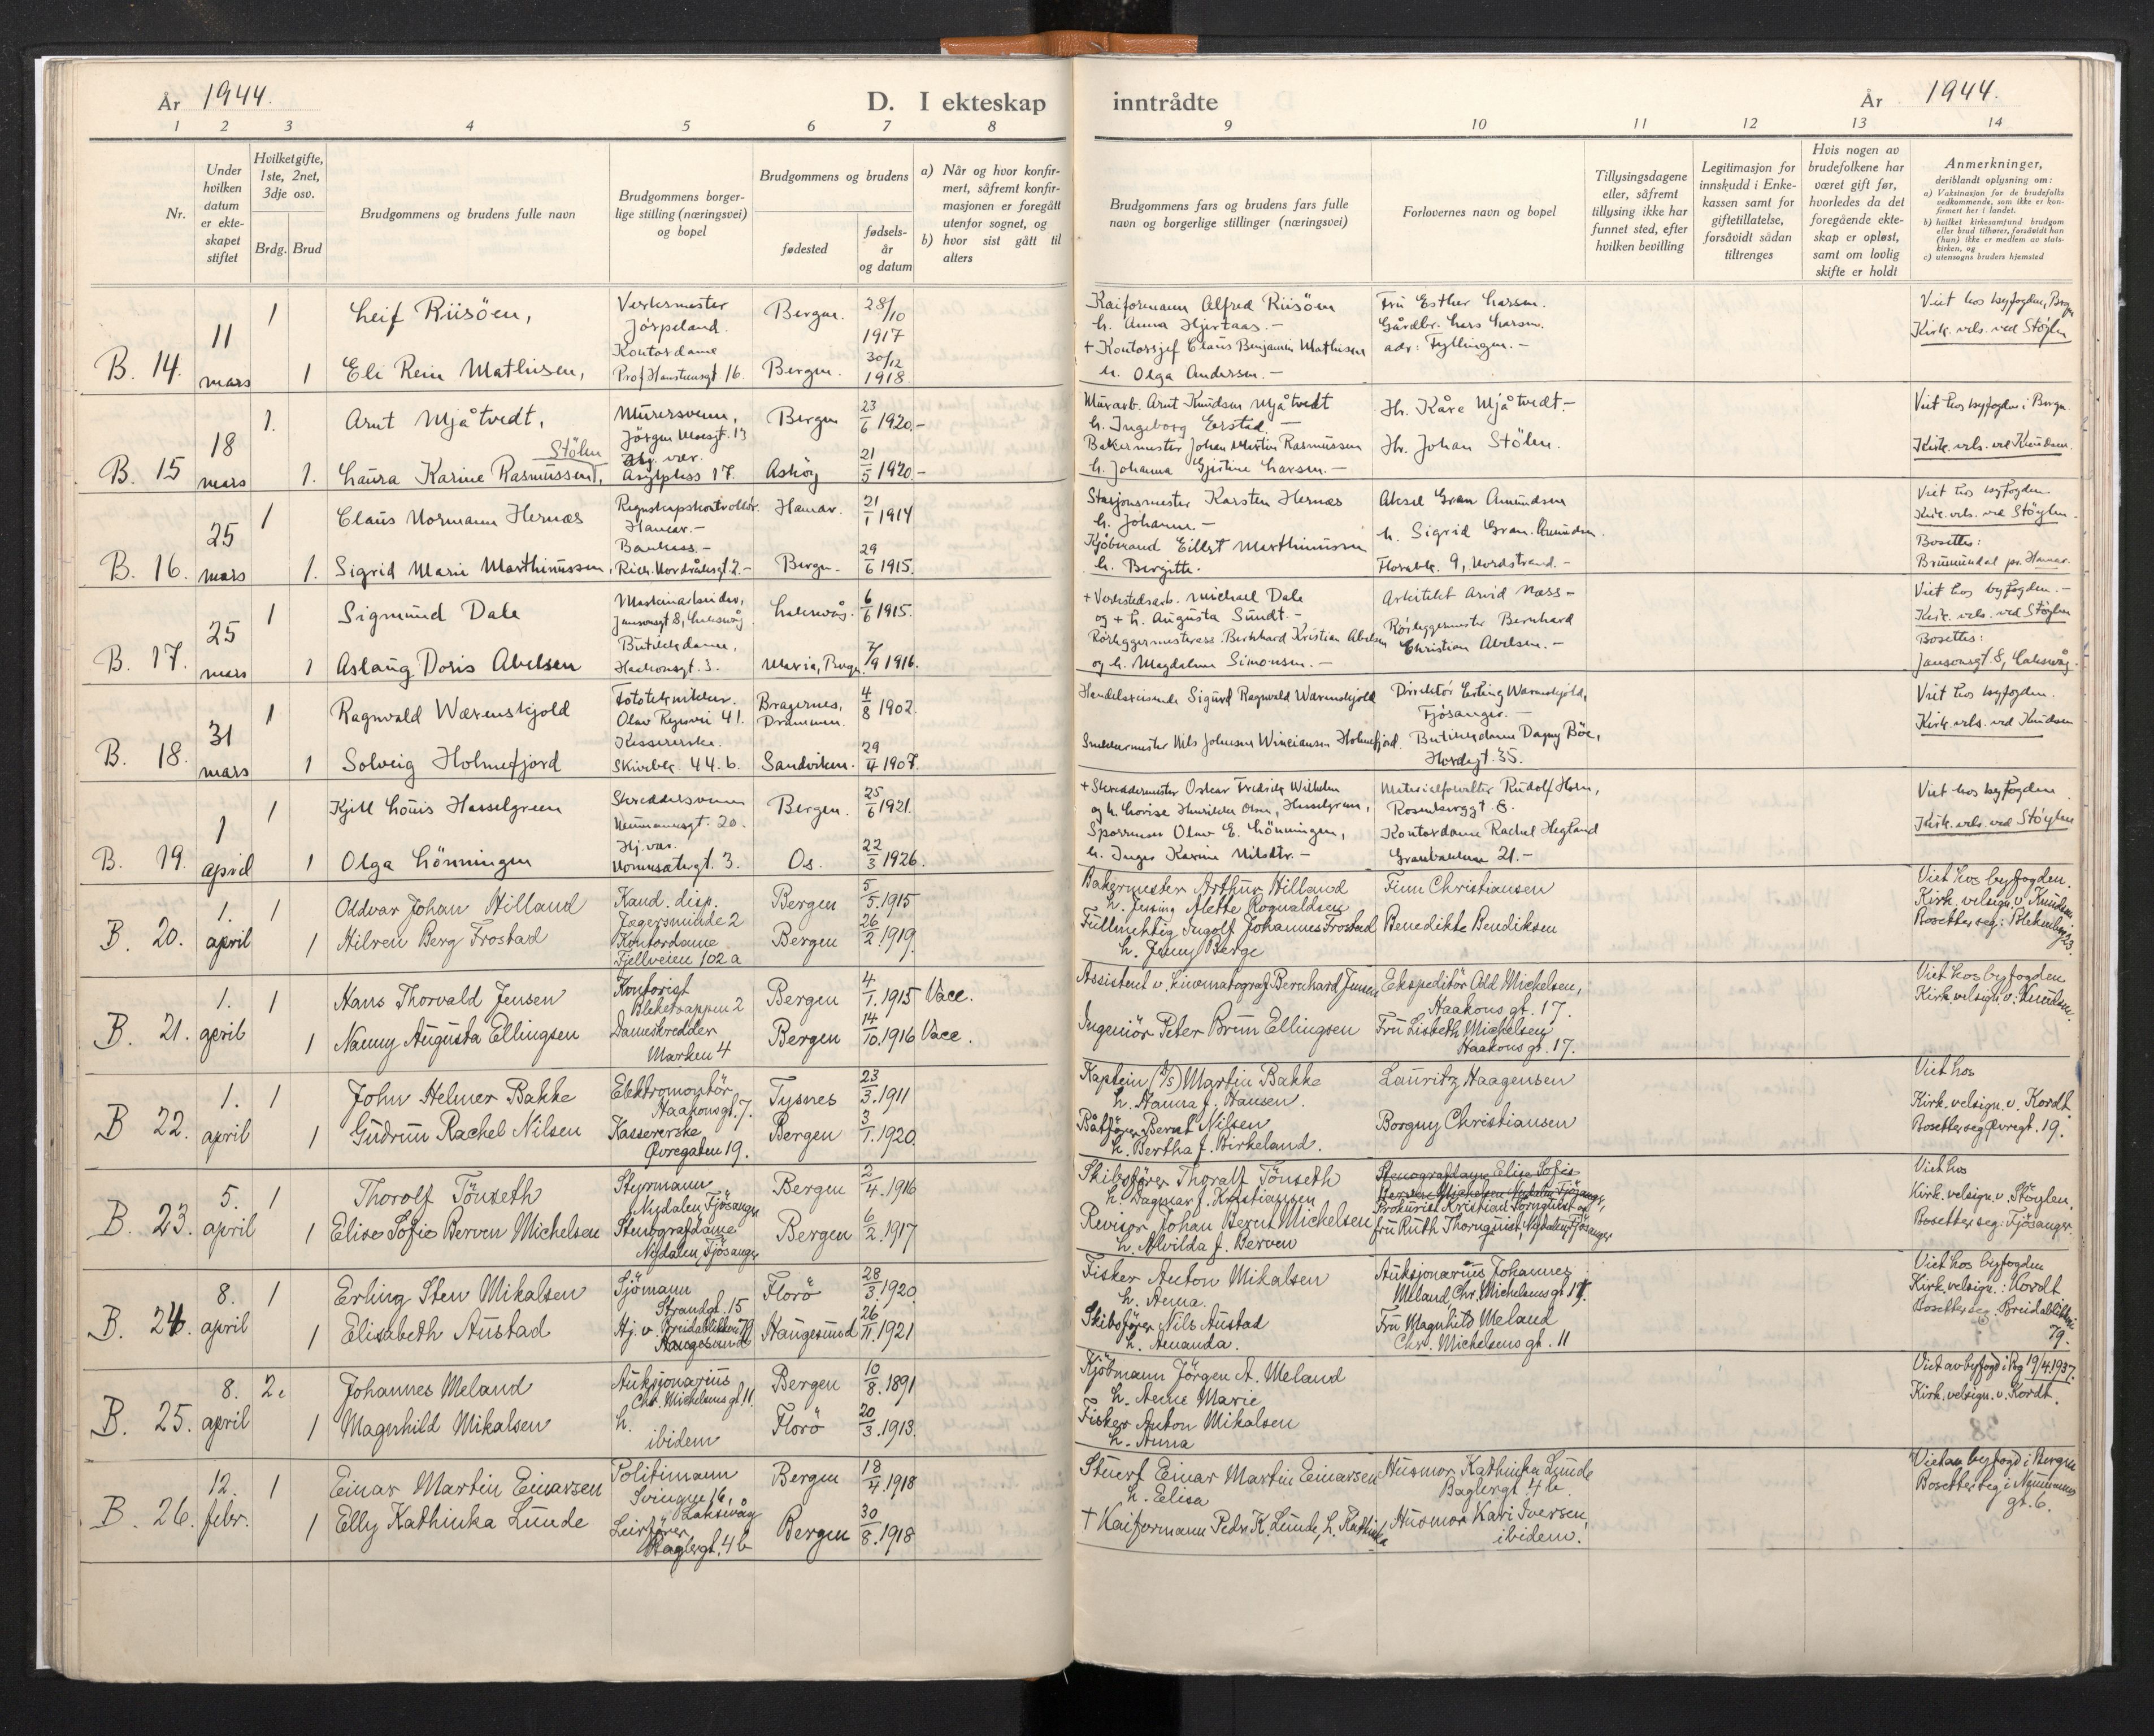 År 1944.
D. I ekteskap
inntrådte
År 1944.
1 2 3 4 5 6 7 8
9 10 11 12 13 14
Nr.
Under hvilken datum er ekteskapet stiftet
Hvilket gifte, 1ste, 2net, 3dje osv.
Brdg. Brud
Brudgommens og brudens fulle navn
Brudgommens borgerlige stilling (næringsvei) og bopel
Brudgommens og brudens
fødested
fødselsår og datum
a) Når og hvor konfirmert, såfremt konfirmasjonen er foregått utenfor sognet, og
b) hvor sist gått til alters
Brudgommens fars og brudens fars fulle navn og borgerlige stillinger (næringsvei)
Forlovernes navn og bopel
Tillysingsdagene eller, såfremt tillysing ikke har funnet sted, efter hvilken bevilling
Legitimasjon for innskudd i Enkekassen samt for giftetillatelse, forsåvidt sådan tiltrenges
Hvis nogen av brudefolkene har været gift før, hvorledes da det foregående ekteskap er opløst, samt om lovlig skifte er holdt
Anmerkninger,
deriblandt oplysning om:
a) Vaksinasjon for de brudefolks vedkommende, som ikke er konfirmert her i landet.
b) hvilket kirkesamfund brudgom eller brud tilhører, forsåvidt han (hun) ikke er medlem av statskirken, og
c) utensogns bruders hjemsted
B. 14. 11 mars 1 Leif Riisöen, Verksmester Jörpeland. Bergen. 28/10 1917
1 Eli Rein Mathisen, Kontordame Prof Hansteensgt 16. Bergen. 30/12 1918.
Kaiformann Alfred Riisöen
h. Anna Hjertaas. -
+ Kontorsjef Claus Benjamin Mathisen
h. Olga Andersen. -
Fru Esther Larsen.
Gårdbr. Lars Larsen.
adr: Tyllingen. -
Viet hos byfogden, Berg.
Kirk. vels. ved Støylen
B. 15 18 mars 1. Arnt Mjåtvedt, Murersvenn, Jörgen Moesgt. 13 Bergen 23/6 1920.-
Stölen
1. Laura Karine Rasmussen, vær. Asylplass 17. Asköy 21/5 1920-
Murarb. Arnt Knudsen Mjåtvedt
h. Ingeborg Erstad. -
Bakermester Johan Martin Rasmussen
h. Johanna Gjertine Larsen. -
Hr. Kåre Mjåtvedt. -
Hr. Johan Stölen.
Viet hos byfogden i Bergen.
Kirk. vels. ved Knudsen.
B. 16. 25 mars 1 Claus Normann Hernæs Regnskapskontrollör. Hamar. - Hamar. 21/1 1914
1. Sigrid Marie Marthinussen, Bankass. - Rich. Nordråksgt 2. - Bergen. 29/6 1915.
Stasjonsmester Karsten Hernæs
h. Johanne. -
Kjöbmand Eilert Marthinussen
h. Bergitte.
Aksel Gran Amundsen
h. Sigrid Gran. Amundsen.
Florabk. 9, Nordstrand. -
Viet hos byfogden.
Kirk. vels. ved Støylen.
Bosettes:
Brumundal pr. Hamar.
B. 17. 25 mars 1 Sigmund Dale Maskinarbeider, Jansonsgt 8, Laksevåg Laksevåg. 6/6 1915.
1 Aslaug Doris Abelsen Butikkdame, Haakonsgt. 3. Maria, Bergen. 7/9 1916.
+ Verkstedsarb. Michael Dale
og + h. Augusta Sundt. -
Rörleggermesterass. Bernhard Kristian Abelsen
og h. Magdalene Simonsen. -
Arkitekt Arvid Næss -
Rörleggermester Bernhard
Christian Abelsen. -
Viet hos byfogden. -
Kirk. vels. ved Støylen
Bosettes:
Jansonsgt. 8, Laksevåg.
B. 18. 31 mars 1 Ragnvald Wærenskjold Fototekniker. Olav Ryesvei 41. Bragernes, Drammen. 4/8 1902.
1 Solveig Holmefjord Kassererske. Skivebk. 44.b. Sandviken. 29/4 1907.
Handelsreisende Sigurd Ragnvald Wærenskjold
Snekkermester Nils Johnsen Holmefjord.
Direktör Erling Wærenskjold,
Fjösanger. -
Butikkdame Dagny Böe,
Hordagt. 35.
Viet hos byfogden.
Kirk. vels. ved Knudsen
B. 19. 1 april 1 Kjell Louis Hasselgreen Skreddersvenn Neumannsgt. 20. Bergen. 25/6 1921.
1 Olga Lönningen Hj. vær. Nonnesætergt. 3. Os. 22/3 1926.
+ Skreddermester Oskar Fredrik Wilhelm
og h. Lovise Henrikke Olsen, Hasselgreen,
Sporvmann Olav E. Lönningen,
h. Inger Karine Nilsdtr. -
Materialforvalter Rudolf Horn,
Rosenberggt. 8.
Kontordame Rachel Hegland
Granbakken 21. -
Viet hos byfogden
Kirk. vels. ved Støylen
B. 20. 1. april 1 Oddvar Johan Hilland Kand. disp. Jægersminde 2 Bergen 5/5.1915
1 Hilren Berg Frostad Kontordame Fjellveien 102a Bergen 26/2.1919.
Bakermester Arthur Hilland
h. Jensine Alette Rognaldsen
Fullmektig Ingolf Johannes Frostad
h. Jenny Berge
Finn Christiansen
Benedikte Bendiksen
Viet hos byfogden.
Kirk. velsign. v. Knudsen.
Bosetter seg: Blekenbg 23.
B. 21. 1. april 1 Hans Thorvald Jensen Kontorist Bleketrappen 2 Bergen 4/1.1915 Vacc.
1 Nanny Augusta Ellingsen Dameskredder Marken 4 Bergen 14/10.1916 Vacc.
Assistent v. kinematograf Bernhard Jensen
Ingeniör Peter Brun Ellingsen
Ekspeditör Odd Michelsen,
Haakons gt. 17.
Fru Lisbeth Michelsen
Haakons gt. 17.
Viet hos byfogden
Kirk. velsign. v. Knudsen.
B 22. 1. april 1 John Helmer Bakke Elektromontör Haakonsgt. 7. Tysnes 23/3.1911
1 Gudrun Rachel Nilsen Kassererske Øvregaten 19. Bergen 3/1.1920.
Kaptein (D/S) Martin Bakke
h. Hanna f. Hansen.
Båtförer Bernt Nilsen
h. Bertha f. Birkeland.
Lauritz Haagensen
Borgny Christiansen
Viet hos
Kirk. velsign. v. Kordt.
Bosetter seg Øvregt. 19.
B. 23. 5. april 1 Thorolf Tönseth Styrmann Nydalen, Fjösanger Bergen 2/4.1916
1 Elise Sofie Berven Michelsen Stenografdame Nydalen, Fjösanger Bergen 6/2.1917
Skibsförer Thoralf Tönseth
h. Dagmar f. Kristiansen
Revisor Johan Bernt Michelsen
h. Alvilda f. Berven
Stenografdame Elise Sofie
Berven Michelsen Nydalen Fjösanger,
Prokurist Kristian Tornquist og
fru Ruth Thornquist, Nydalen, Fjösanger
Viet hos
Kirk. velsign. v. Støylen.
Bosetter seg: Fjösanger.
B. 24. 8. april 1 Erling Sten Mikalsen Sjömann Strandgt. 15 Florö 28/3.1920.
1 Elisabeth Austad Hj. v. Breidablikkvei 79 Haugesund Haugesund 26/11.1921
Fisker Anton Mikalsen
h. Anna.
Skibsförer Nils Austad
h. Amanda.
Auksjonarius Johannes
Meland Chr. Michelsens gt 11.
Fru Magnhild Meland
Chr. Michelsens gt. 11
Viet hos byfogden
Kirk. velsign.: Kordt
Bosetter seg: Breidablikkvei
79.
B. 25. 8. april 2. Johannes Meland Auksjonarius Chr. Michelsens gt 11. Bergen 10/8.1891
1 Magnhild Mikalsen h. ibidem Florö 20/3.1913.
Kjöbmann Jörgen A. Meland
h. Anne Marie
Fisker Anton Mikalsen
h. Anna
Viet av byfogd i Bg 19/4.1937.
Kirk. velsign. v. Kordt.
B. 26. 12. febr. 1 Einar Martin Einarsen Politimann Svingen 16, Laksevåg Bergen 18/4.1918
1 Elly Kathinka Lunde Baglergt. 4b Bergen 30/8.1918
Stuert Einar Martin Einarsen
h. Elisa
+ Kaiformann Peder K. Lunde, h. Kathinka
Husmor Kathinka Lunde
Baglergt. 4b.
Husmor Kari Iversen,
ibidem.
Viet av byfogd i Bergen
Bosetter seg i Neumanns
gt. 6.